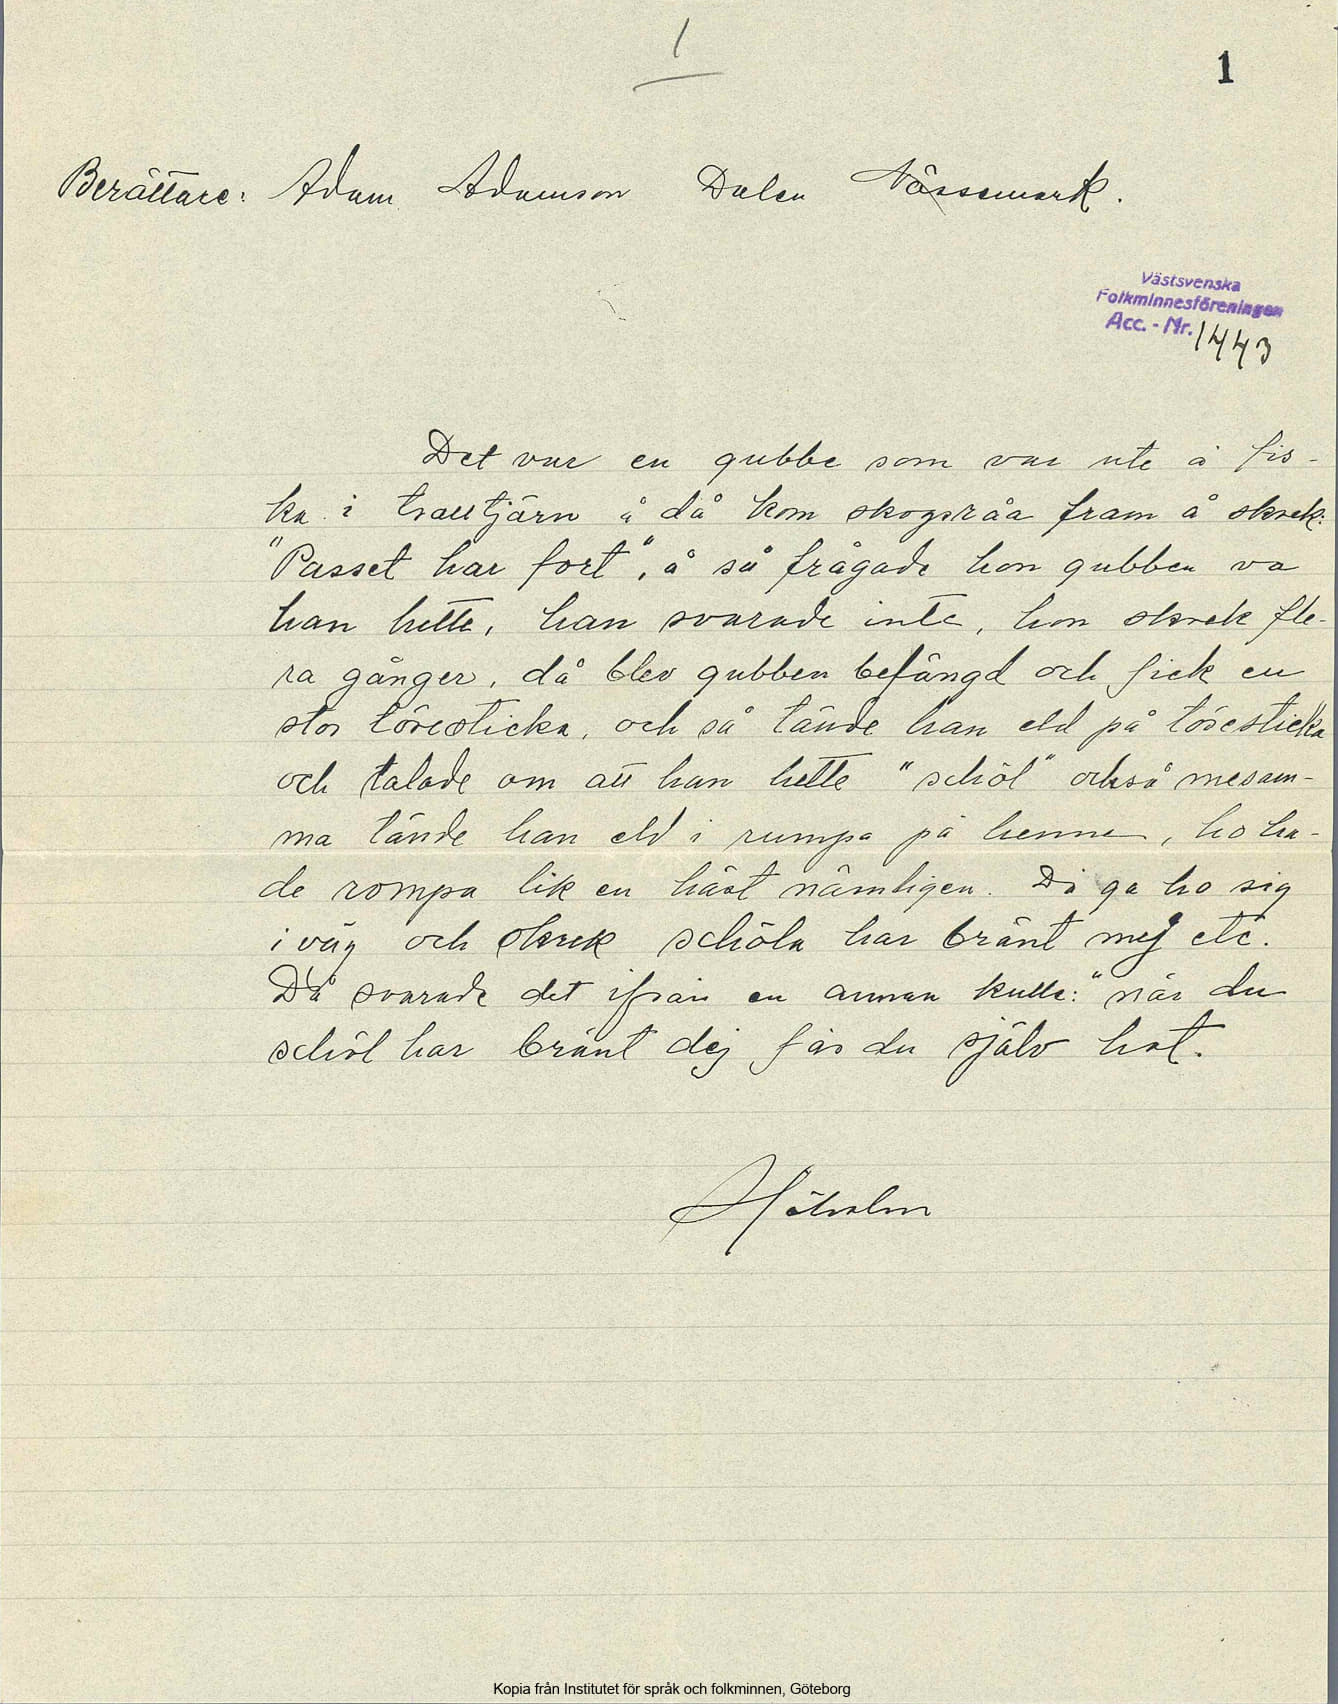 1
1
Berättare: Adam Adamson Dalen Nössemark.
Västsvenska
Folkminnesföreningen
Acc. - Nr. 1443
Det var en gubbe som var ute å fis-
ka i tjärn å då kom skogsråa fram å skrek:
"Passet har fort", å så frågade hon gubben va
han hette, han svarade inte, hon skrek fle-
ra gånger, då blev gubben befängd och fick en
stor töresticka, och så tände han eld på törestick
och talade om att han hette "schöl" också mesam-
ma tände han eld i rumpa på henne, ho ha-
de rompa lik en häst nämligen. Då ga ho sig
iväg och skrek schöla har bränt mej etc.
Då svarade det ifrån en annan kulle: "när du
schöl har bränt dej får du själv hot.
Kopia från Institutet för språk och folkminnen, Göteborg